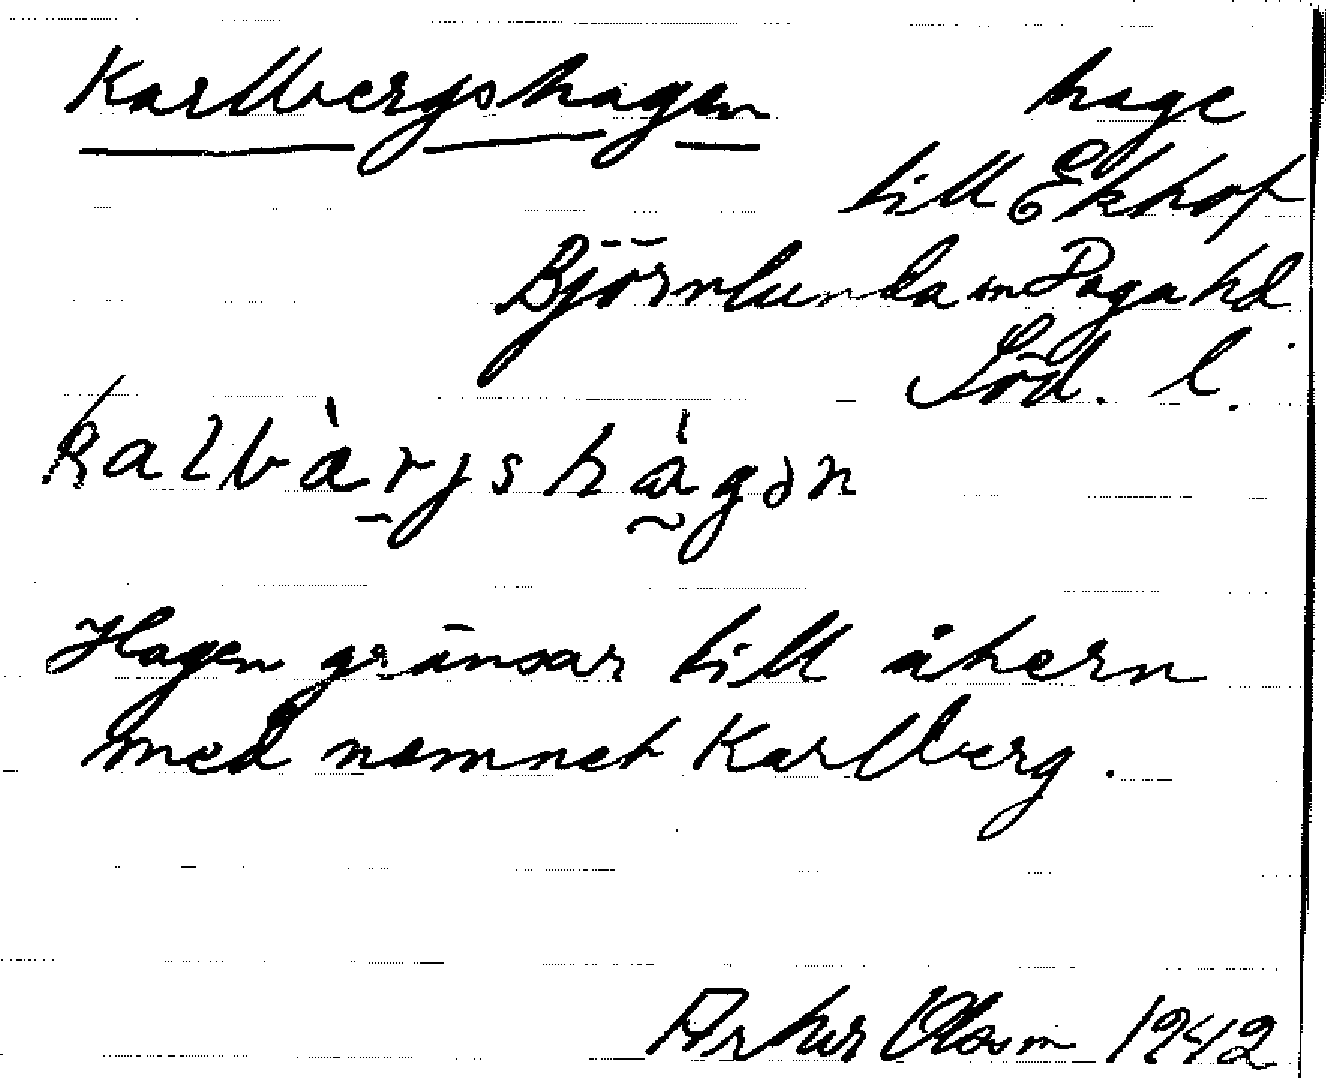 Karlbergshagen hage
till Ekhof
Björnlunda sn Daga hd.
Söd. l.
kalbàrjshàgən
Hagen gränsar till åkern
med namnet Karlberg.
Arthur Olsson 1942